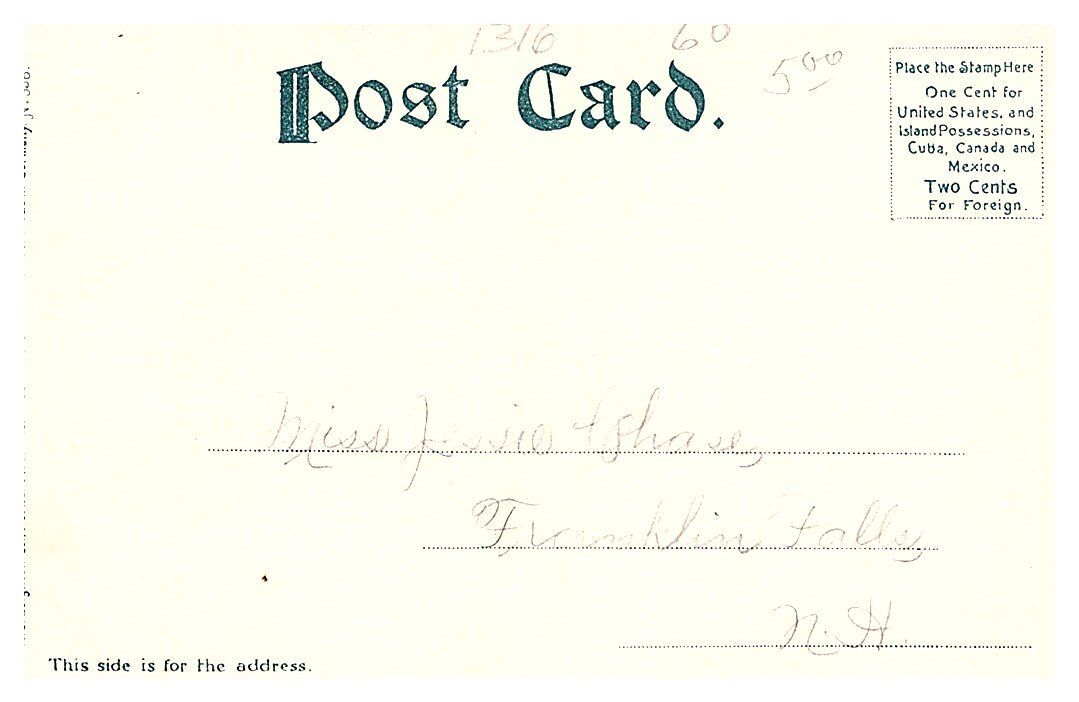 1316 60
5 00
Post Card.
Place the Stamp Here
One Cent for
United States, and
Island Possessions,
Cuba, Canada and
Mexico.
Two Cents
For Foreign.
Miss Jessie Chase,
Franklin Falls,
N.H.
This side is for the address.